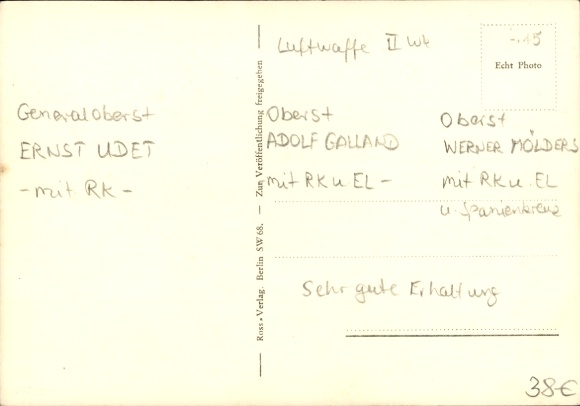 Luftwaffe II Wk
-.15
Echt Photo
Generaloberst
ERNST UDET
- mit RK -
Oberst
ADOLF GALLAND
mit RK u EL -
Oberst
WERNER MÖLDERS
mit RK u. EL
u. Spanienkreuz
Sehr gute Erhaltung
Ross-Verlag. Berlin SW 68. — Zur Veröffentlichung freigegeben
38€